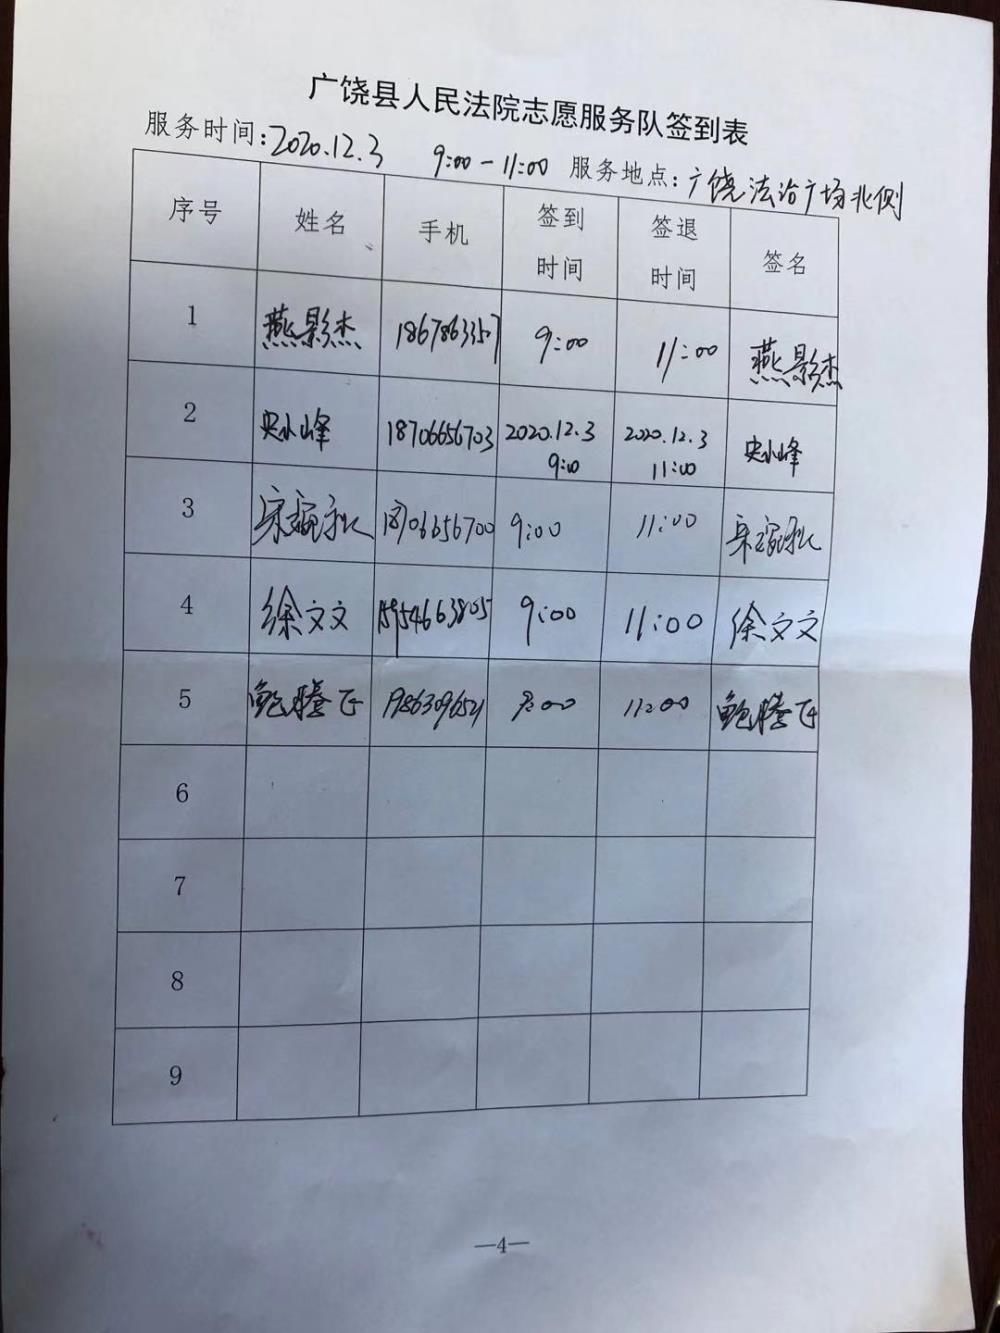 广饶县人民法院志愿服务队签到表
服务时间:2020.12.3 9:00-11:00 服务地点:广饶法治广场北侧
序号 姓名 手机 签到时间 签退时间 签名
1 燕影杰 9:00 11:00 燕影杰
2 史小峰 18706656703 2020.12.3 9:00 2020.12.3 11:00 史小峰
3 18706656700 9:00 11:00
4 徐文文 15954663805 9:00 11:00 徐文文
5 鲍腾飞 9:00 11:00 鲍腾飞
6
7
8
9
—4—